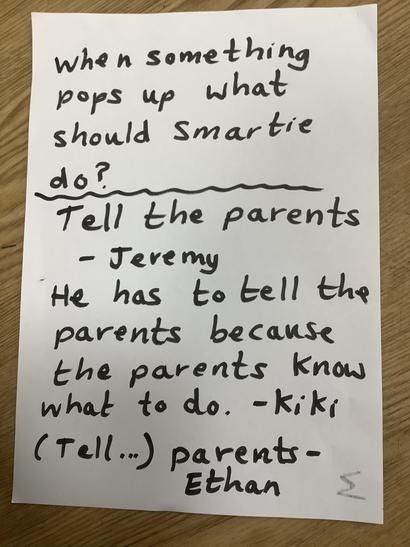 when something
pops up what
should Smartie
do?
Tell the parents
- Jeremy
He has to tell the
parents because
the parents know
what to do. - Kiki
(Tell...) parents -
Ethan